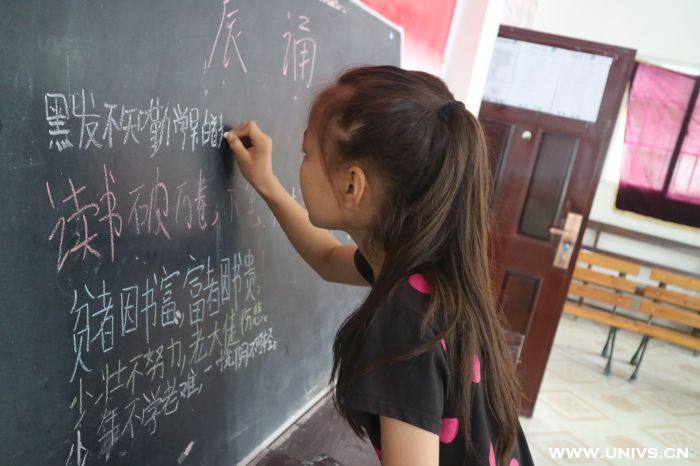 辰 诵
黑发不知勤学早白
读书破万卷,下笔
贫者因书富,富者因书贵。
少壮不努力,老大徒伤悲。
少年不学老难,一阴不轻
WWW.UNIVS.CN